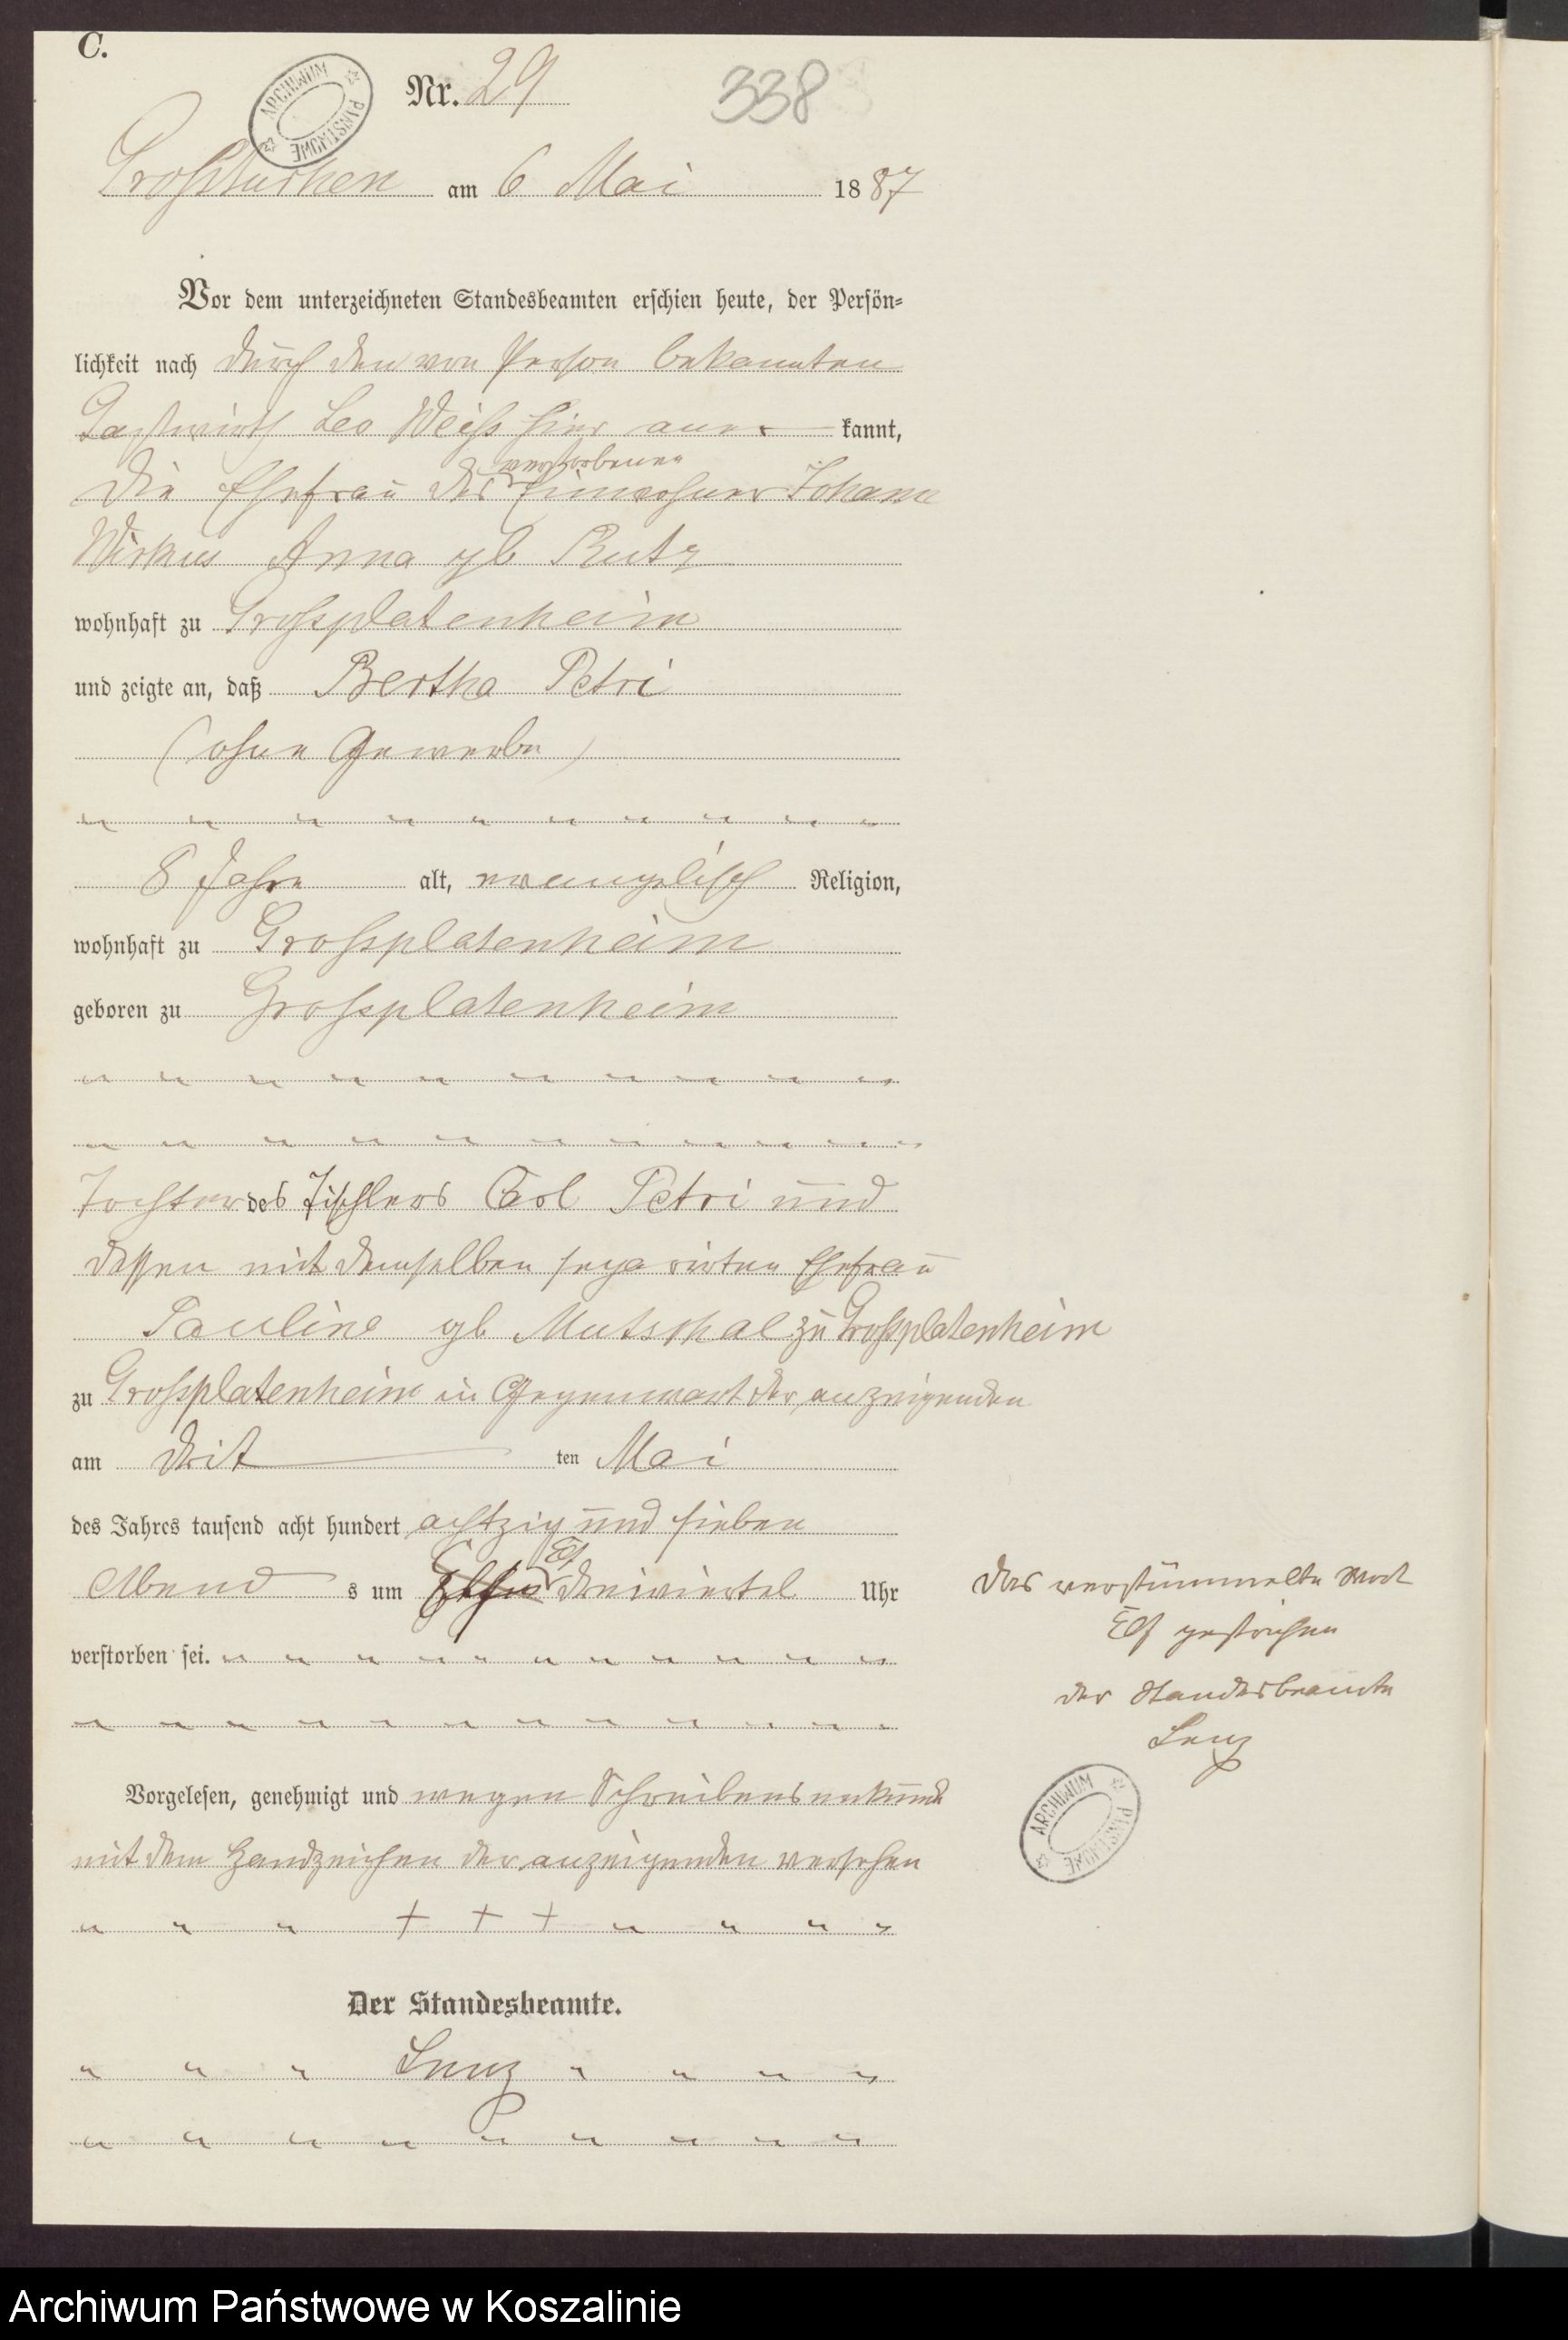 C.
ARCHIWUM PAŃSTWOWE
Nr. 29
338
Großtuchen am 6 Mai 1887
Vor dem unterzeichneten Standesbeamten erschien heute, der Persön-
lichkeit nach durch den von Person bekannten
Gastwirth Leo Weiß hier aner- kannt,
verstorbenen
die Ehefrau des Einwohner Johann
Wirkus Anna gb Rutz
wohnhaft zu Grossplatenheim
und zeigte an, daß Bertha Petri
(ohne Gewerbe)
8 Jahre alt, evangelisch Religion,
wohnhaft zu Grossplatenheim
geboren zu Grossplatenheim
Tochter des Tischlers Carl Petri und
dessen mit demselben separirten Ehefrau
Pauline gb Mutschal zu Großplatenheim
zu Grossplatenheim in Gegenwart der anzeigenden
am drit ten Mai
des Jahres tausend acht hundert achtzig und sieben
Elf
Abend s um dreiviertel Uhr
verstorben sei.
Das verstümmelte Wort
Elf gestrichen
der Standesbeamte
Lenz
ARCHIWUM PAŃSTWOWE
Vorgelesen, genehmigt und wegen Schreibensunkunde
mit dem Handzeichen der anzeigenden versehen
+ + +
Der Standesbeamte.
Lenz
Archiwum Państwowe w Koszalinie